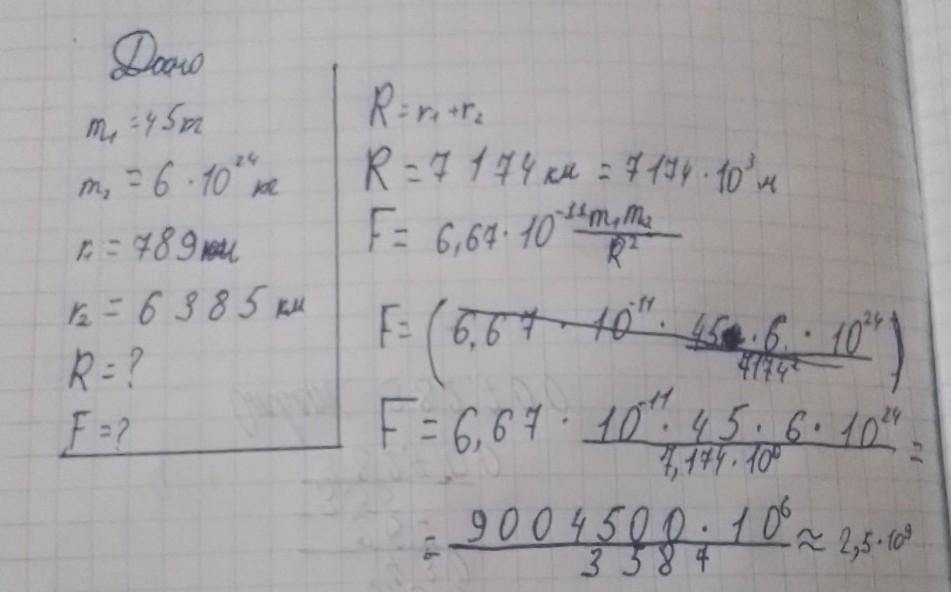 Дано
m₁ = 45 т
m₂ = 6 · 10²⁴ кг
r₁ = 789 км
r₂ = 6 385 км
R = ?
F = ?
R = r₁ + r₂
R = 7 174 км = 7174 · 10³ м
F = 6,67 · 10⁻¹¹ m₁m₂ / R²
F = (6,67 · 10⁻¹¹ · 45 · 6 · 10²⁴ / 7174²)
F = 6,67 · 10⁻¹¹ · 45 · 6 · 10²⁴ / 7,174 · 10⁶ =
= 9004500 · 10⁶ / 3587 ≈ 2,5 · 10⁹